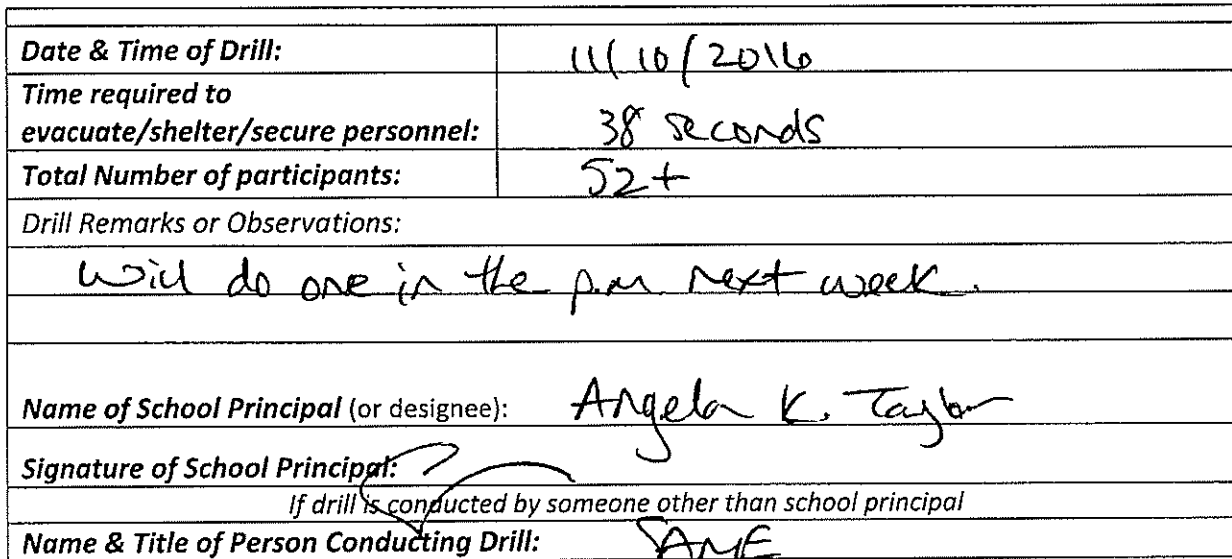 Date & Time of Drill: 11/10/2016
Time required to
evacuate/shelter/secure personnel: 38 seconds
Total Number of participants: 52+
Drill Remarks or Observations:
Will do one in the p.m. next week.
Name of School Principal (or designee): Angela K. Taylor
Signature of School Principal:
If drill is conducted by someone other than school principal
Name & Title of Person Conducting Drill: SAME